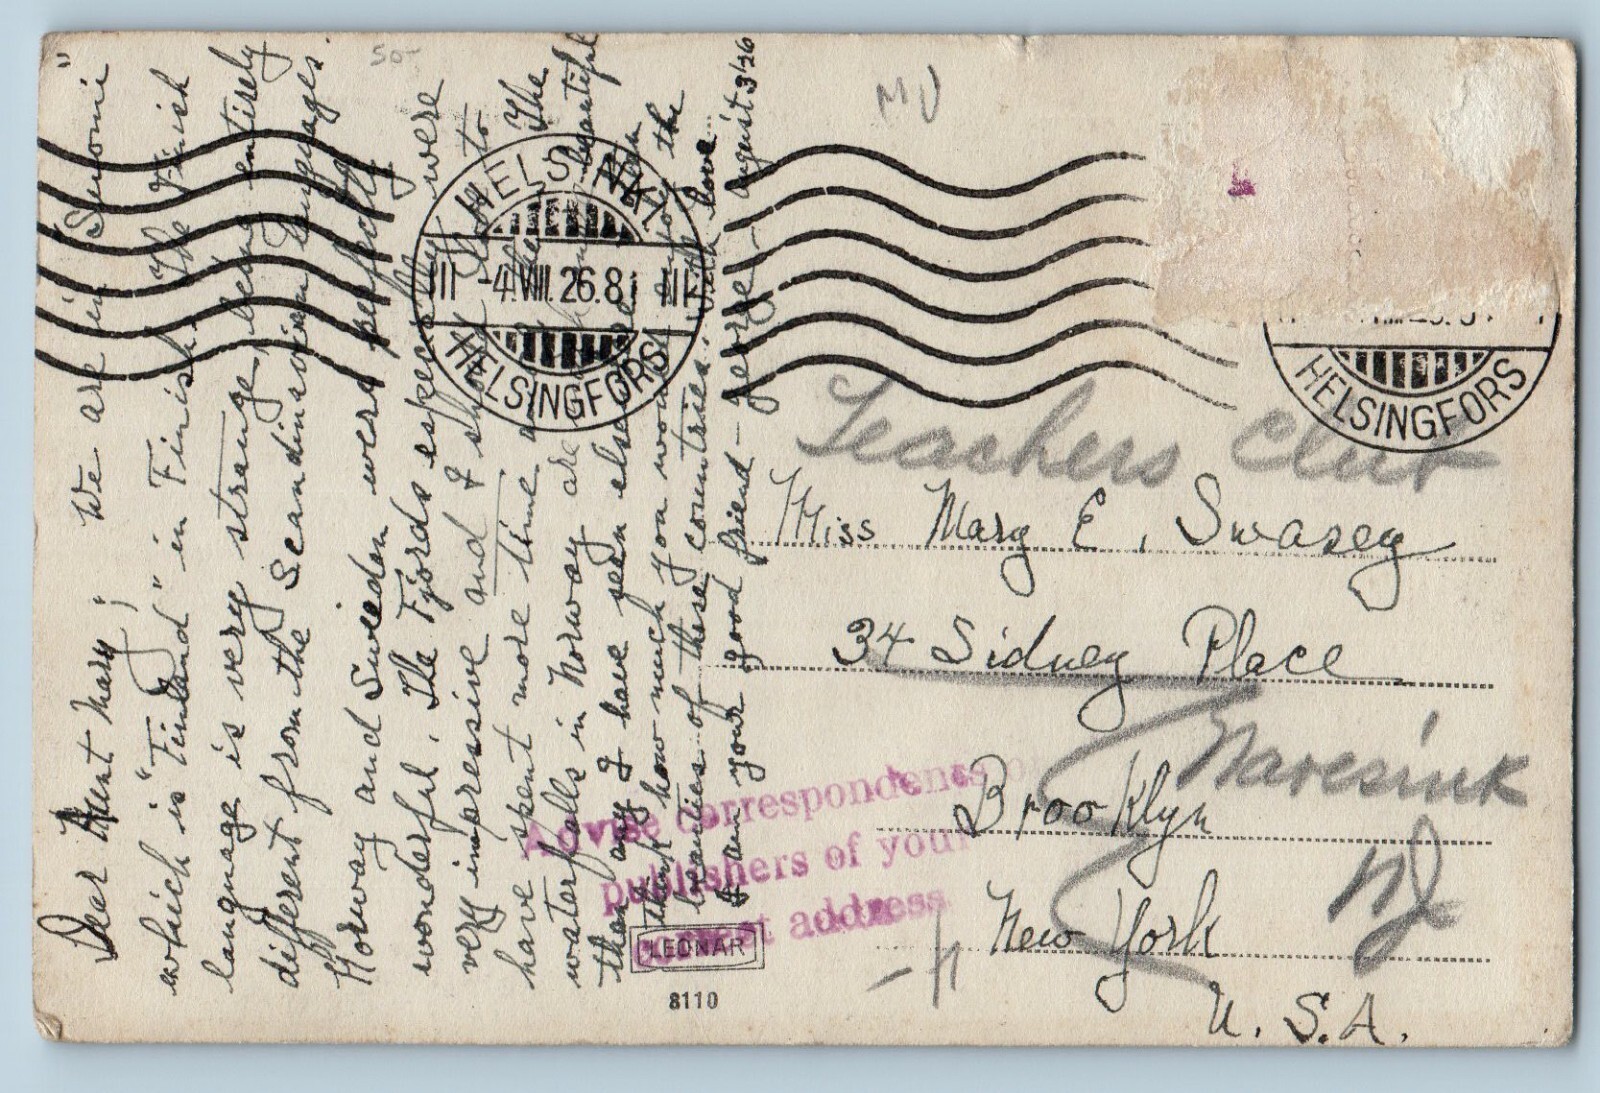 Dear Aunt Mary; We are in "Suomi"
which is "Finland" in Finish. The Finish
language is very strange, being entirely
different from the Scandinavian languages.
Norway and Sweden were perfectly
wonderful. The Fjords especially were
very impressive and I should like to
have spent more time The
waterfalls in Norway are beautiful
than any I have seen else
think how much you would enjoy the
beauties of these countries. With love
I am your good friend - George - August 3 '26
50-
MU
HELSINKI
III -4.VIII.26.8 III
HELSINGFORS
HELSINGFORS
Teachers Club
Miss Mary E. Swasey
34 Sidney Place
Brooklyn
Navesink
New York
NJ
U.S.A.
Advise correspondents or
publishers of your
correct address
LEONAR
8110